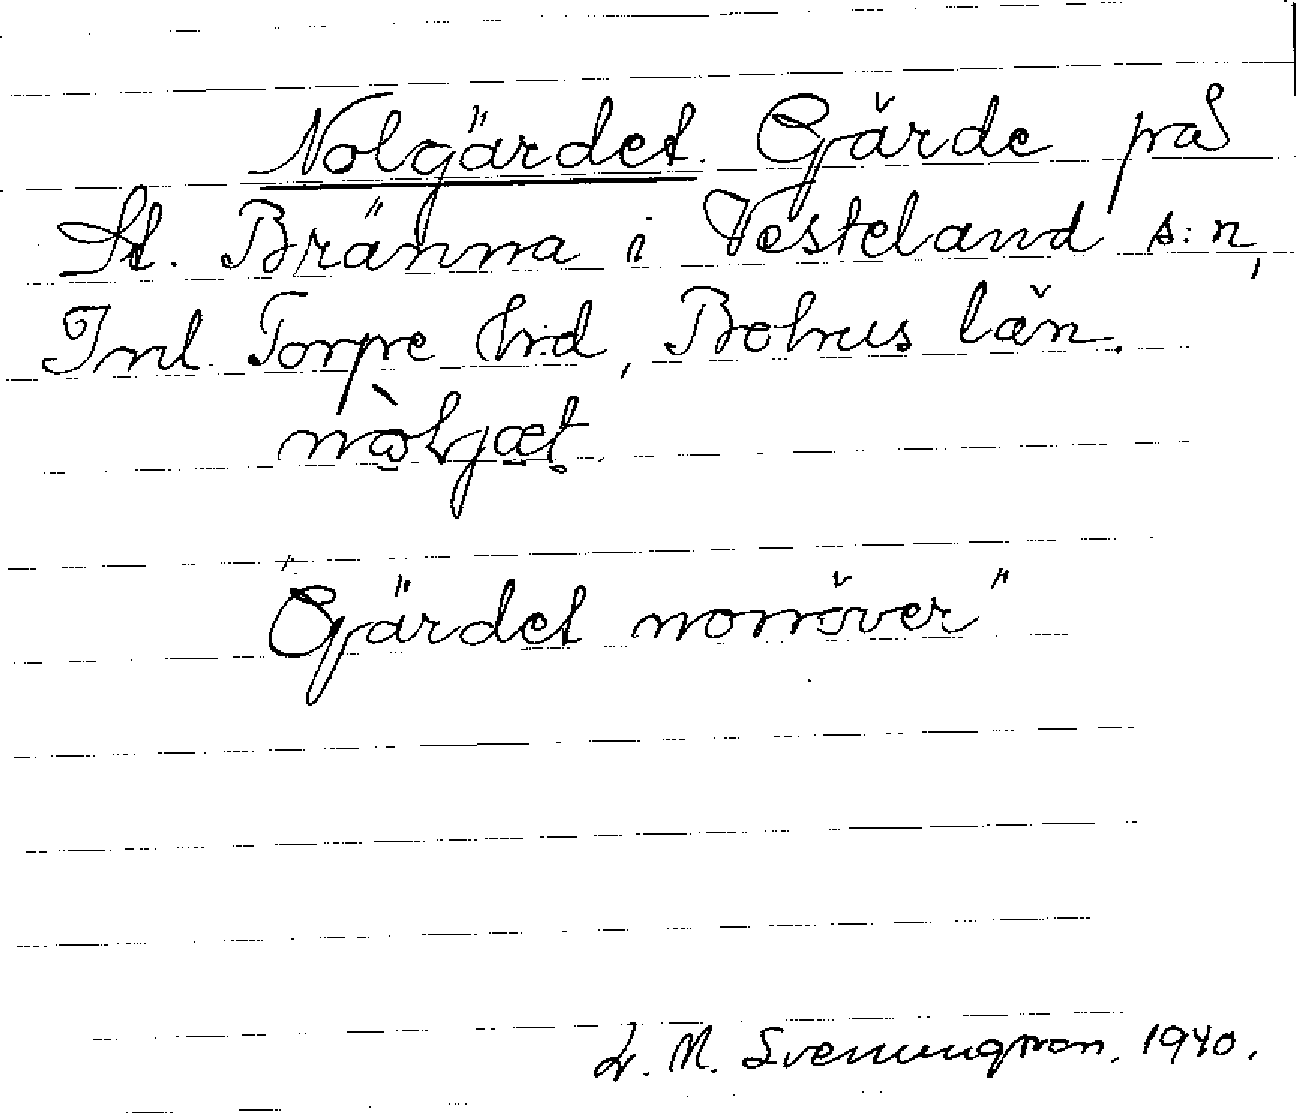 Nolgärdet. Gärde på
St. Bränna i Vesteland s:n,
Inl. Torpe hrd, Bohus län.
nòlgæt
"Gärdet norröver"
L. M. Svenungsson. 1940.